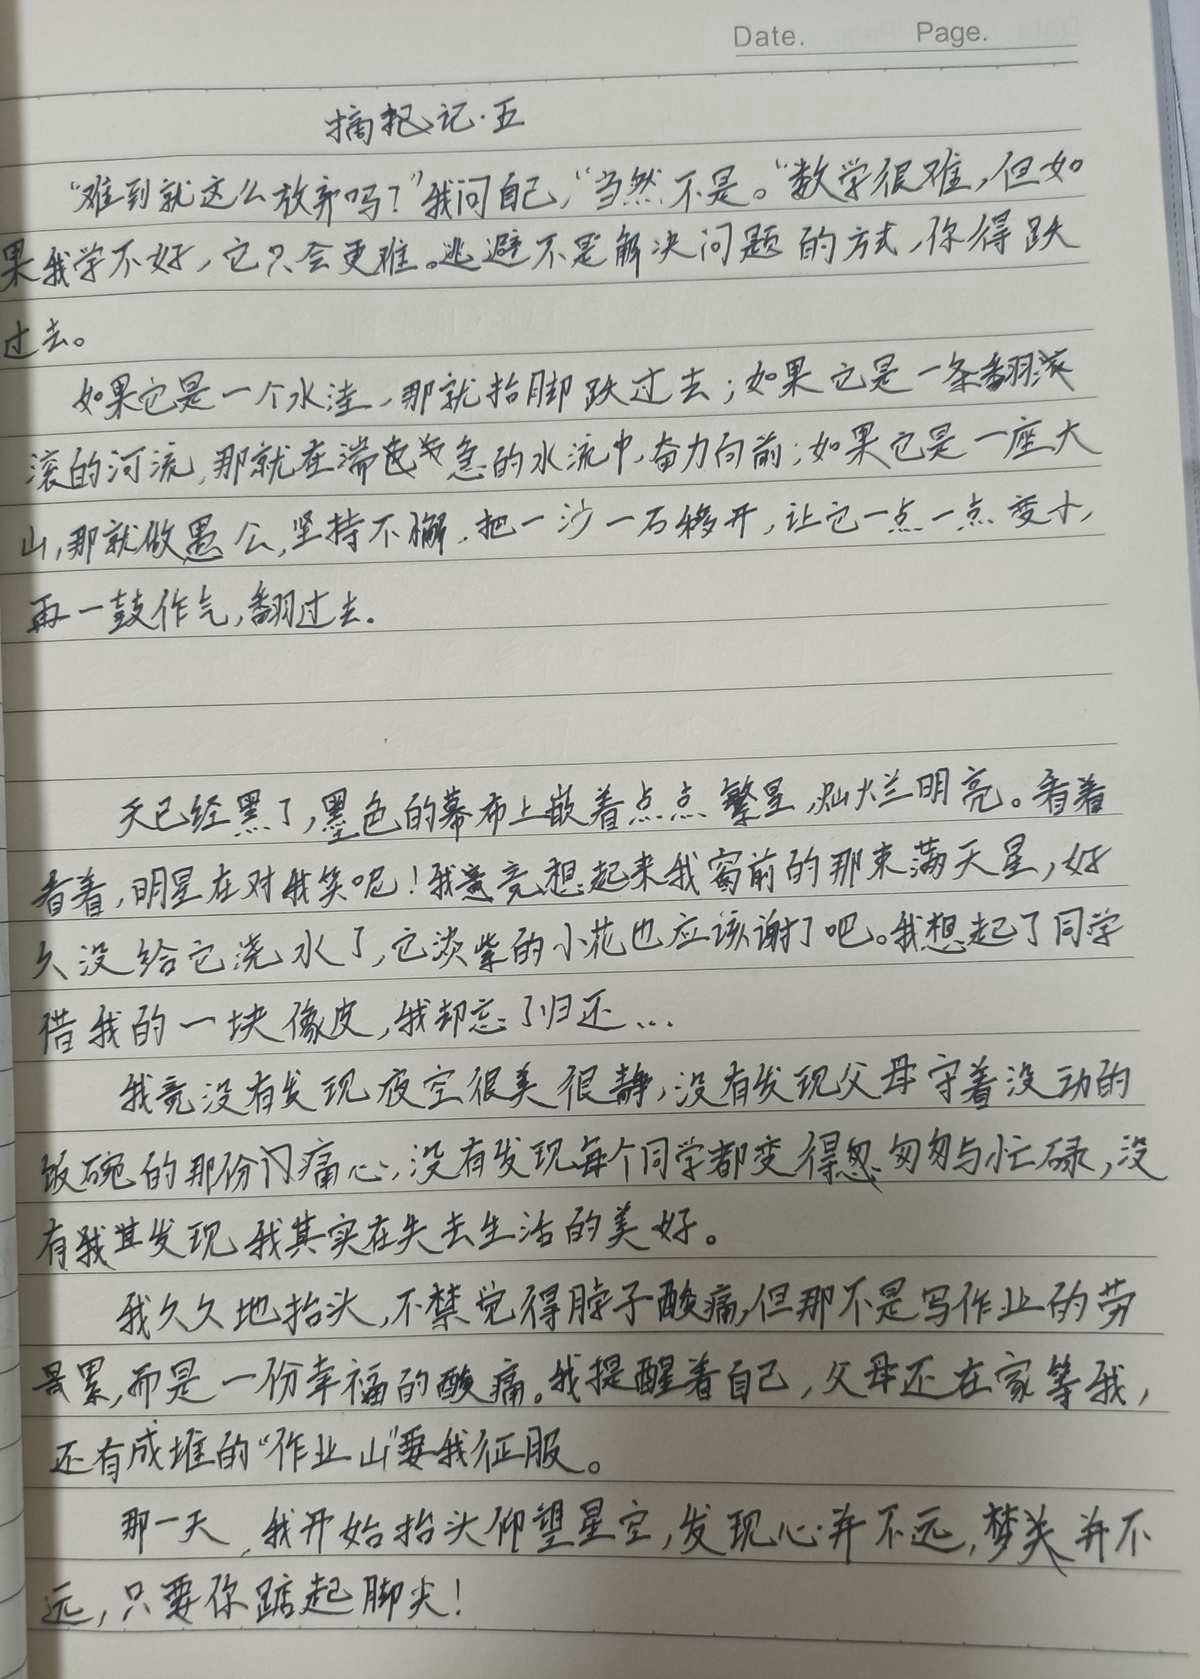 Date. Page.
摘抄记·五
“难到就这么放弃吗？”我问自己，“当然不是。”数学很难，但如
果我学不好，它只会更难。逃避不是解决问题的方式，你得跃
过去。
如果它是一个水洼，那就抬脚跃过去；如果它是一条翻滚
滚的河流，那就在湍急的水流中，奋力向前；如果它是一座大
山，那就做愚公，坚持不懈，把一沙一石移开，让它一点一点变小，
再一鼓作气，翻过去。
天已经黑了，墨色的幕布上嵌着点点繁星，灿烂明亮。看着
看着，明星在对我笑呢！我竟想起来我窗前的那束满天星，好
久没给它浇水了，它淡紫的小花也应该谢了吧。我想起了同学
借我的一块像皮，我却忘了归还…
我竟没有发现夜空很美很静，没有发现父母守着没动的
饭碗的那份痛心，没有发现每个同学都变得匆匆与忙碌，没
有发现我其实在失去生活的美好。
我久久地抬头，不禁觉得脖子酸痛，但那不是写作业的劳
累，而是一份幸福的酸痛。我提醒着自己，父母还在家等我，
还有成堆的“作业山”要我征服。
那一天，我开始抬头仰望星空，发现心并不远，梦并不
远，只要你踮起脚尖！